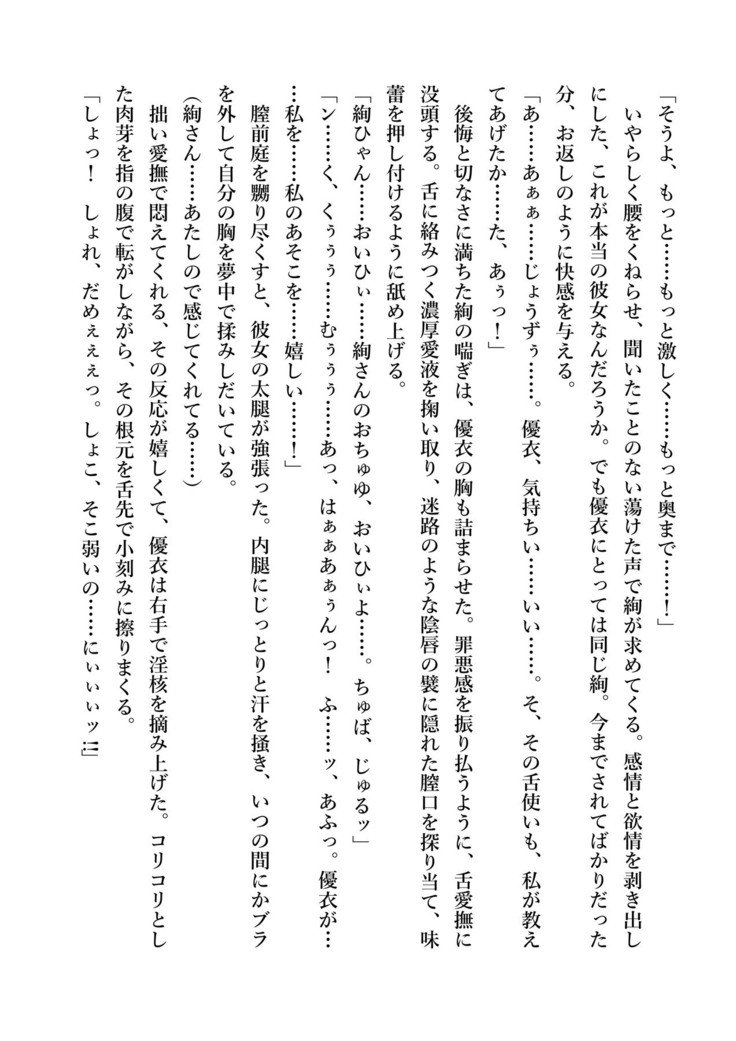 「そうよ、もっと……もっと激しく……もっと奥まで……！」
いやらしく腰をくねらせ、聞いたことのない蕩けた声で絢が求めてくる。感情と欲情を剥き出し
にした、これが本当の彼女なんだろうか。でも優衣にとっては同じ絢。今までされてばかりだった
分、お返しのように快感を与える。
「あ……あぁぁ……じょうずぅ……。優衣、気持ちい……いい……。そ、その舌使いも、私が教え
てあげたか……た、あぅっ！」
後悔と切なさに満ちた絢の喘ぎは、優衣の胸も詰まらせた。罪悪感を振り払うように、舌愛撫に
没頭する。舌に絡みつく濃厚愛液を掬い取り、迷路のような陰唇の襞に隠れた膣口を探り当て、味
蕾を押し付けるように舐め上げる。
「絢ひゃん……おいひぃ……絢さんのおちゅゆ、おいひぃよ……。ちゅば、じゅるッ」
「ン……く、くぅぅぅ……むぅぅぅ……あっ、はぁぁあぁぅんっ！　ふ……ッ、あふっ。優衣が…
…私を……私のあそこを……嬉しい……！」
膣前庭を嬲り尽くすと、彼女の太腿が強張った。内腿にじっとりと汗を掻き、いつの間にかブラ
を外して自分の胸を夢中で揉みしだいている。
（絢さん……あたしので感じてくれてる……）
拙い愛撫で悶えてくれる、その反応が嬉しくて、優衣は右手で淫核を摘み上げた。コリコリとし
た肉芽を指の腹で転がしながら、その根元を舌先で小刻みに擦りまくる。
「しょっ！　しょれ、だめぇぇぇっ。しょこ、そこ弱いの……にぃぃぃッ!!!」